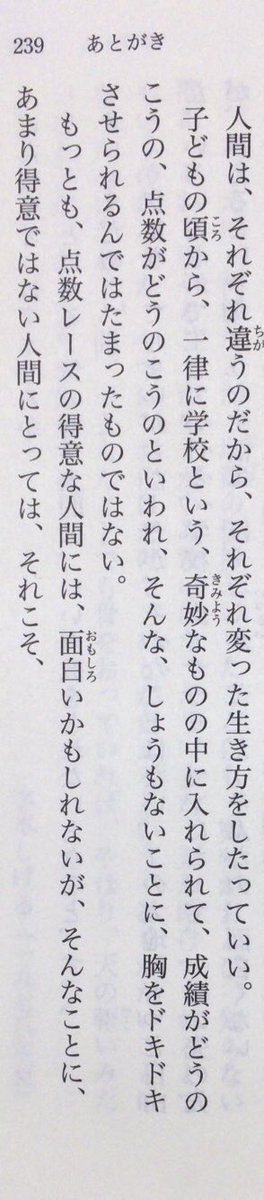 239 あとがき
人間は、それぞれ違うのだから、それぞれ変った生き方をしたっていい。
子どもの頃から、一律に学校という、奇妙なものの中に入れられて、成績がどうの
こうの、点数がどうのこうのといわれ、そんな、しょうもないことに、胸をドキドキ
させられるんではたまったものではない。
もっとも、点数レースの得意な人間には、面白いかもしれないが、そんなことに、
あまり得意ではない人間にとっては、それこそ、